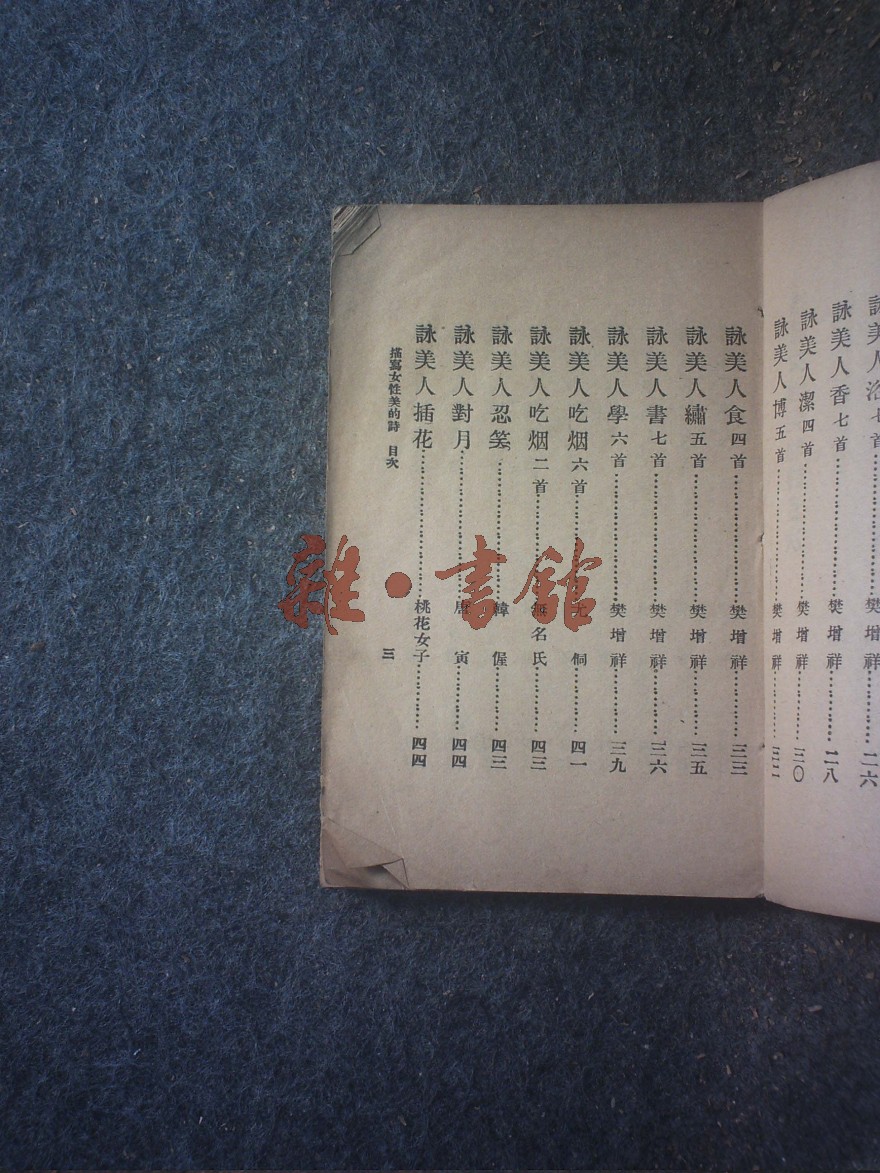 詠美人浴七首……樊增祥……二六
詠美人香七首……樊增祥……二八
詠美人潔四首……樊增祥……三〇
詠美人博五首……樊增祥……三二
詠美人食四首……樊增祥……三三
詠美人繡五首……樊增祥……三五
詠美人書七首……樊增祥……三六
詠美人學六首……樊增祥……三九
詠美人吃烟六首……尤侗……四一
詠美人吃烟二首……無名氏……四三
詠美人忍笑……韓偓……四三
詠美人對月……唐寅……四四
詠美人插花……桃花女子……四四
描寫女性美的詩 目次
三
雜·書館